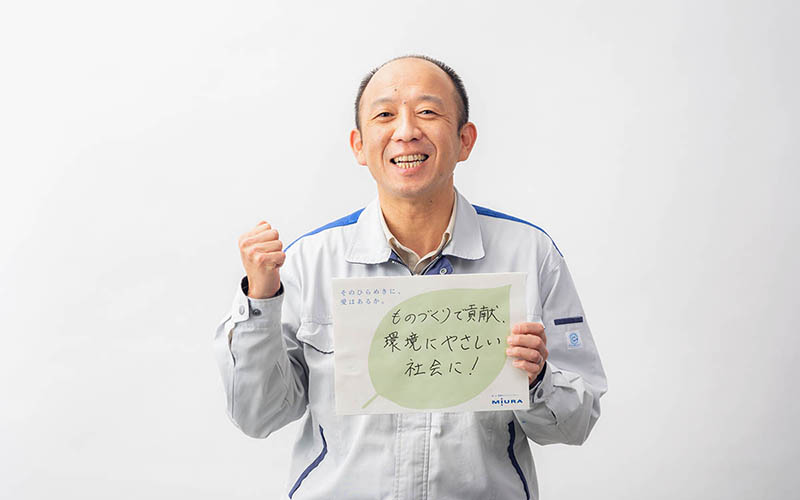 そのひらめきに、
愛はあるか。
ものづくりで貢献、
環境にやさしい
社会に！
MIURA